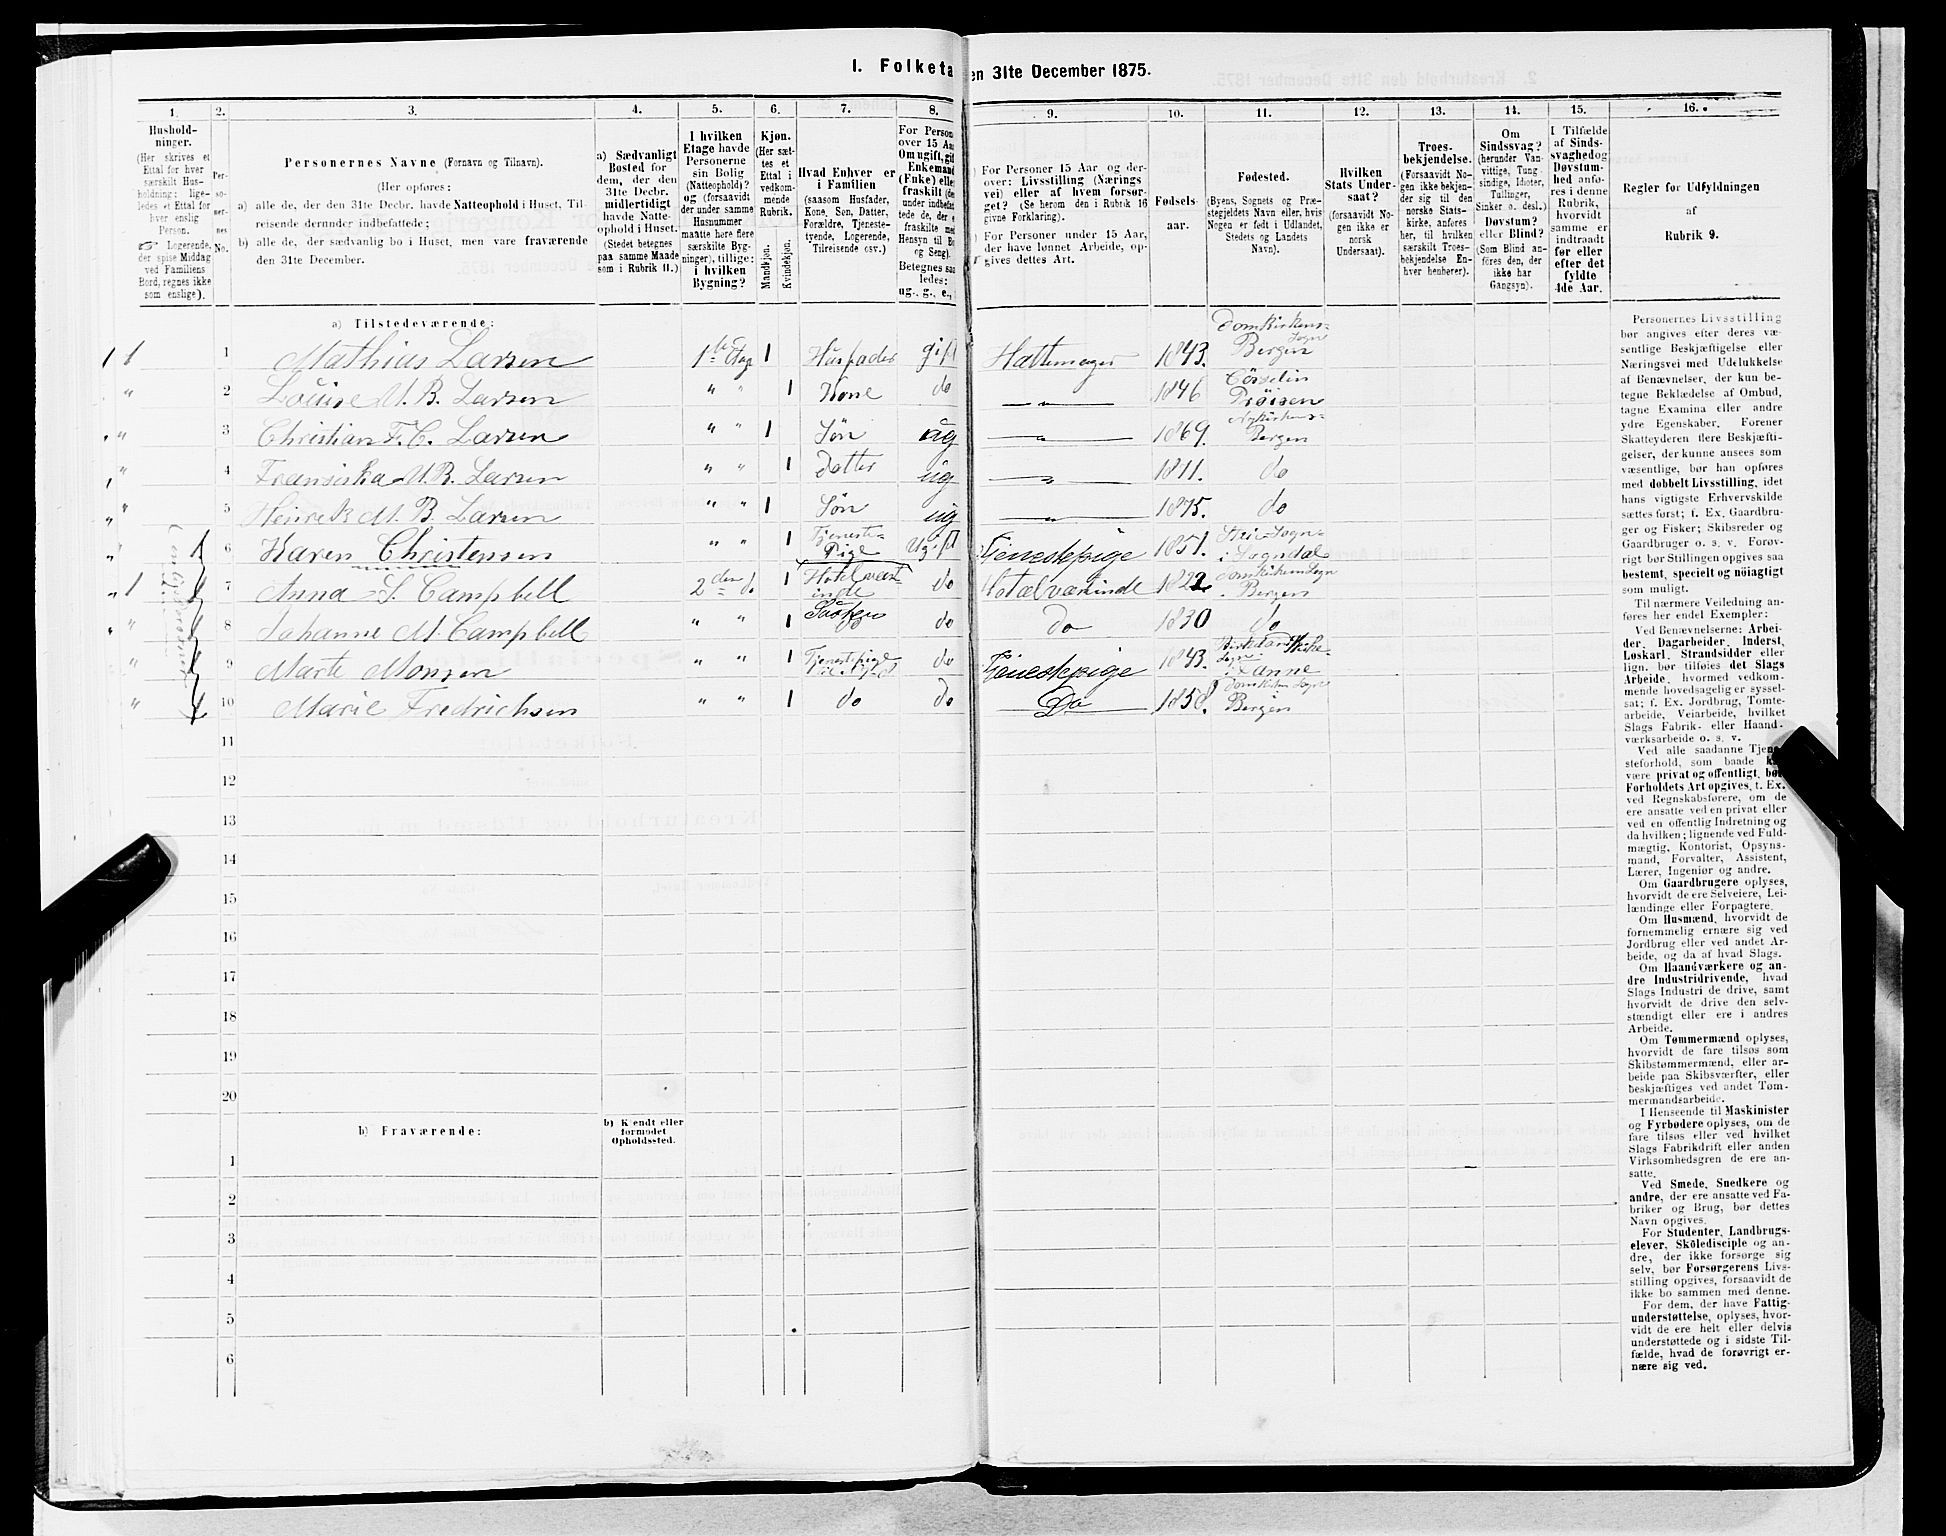 I. Folketa
en 31te December 1875.
1.
2.
3.
4.
5.
6.
7.
8.
9.
10.
11.
12.
13.
14.
15.
16.
Hushold-
ninger.
(Her skrives et
Ettal for hver
særskilt Hus-
holdning; lige-
ledes et Ettal for
hver enslig
Person.
☞ Logerende,
der spise Middag
ved Familiens
Bord, regnes ikke
som enslige).
Per-
so-
ner-
nes
No.
Personernes Navne (Fornavn og Tilnavn).
(Her opføres:
a) alle de, der den 31te Decbr. havde Natteophold i Huset, Til-
reisende derunder indbefattede;
b) alle de, der sædvanlig bo i Huset, men vare fraværende
den 31te December.
a) Sædvanligt
Bosted for
dem, der den
31te Decbr.
midlertidigt
havde Natte-
ophold i Huset.
(Stedet betegnes
paa samme Maade
som i Rubrik 11.)
I hvilken
Etage havde
Personerne
sin Bolig
(Natteophold)?
og (forsaavidt
der under samme
Husnummer
maatte høre flere
særskilte Byg-
ninger), tillige:
i hvilken
Bygning?
Kjøn.
(Her sæt-
tes et
Ettal i
vedkom-
mende
Rubrik.
Mandkjøn.
Kvindekjøn.
Hvad Enhver er
i Familien
(saasom Husfader,
Kone, Søn, Datter,
Forældre, Tjeneste-
tyende, Logerende,
Tilreisende osv.)
For Person
over 15 Aa
Om ugift, gif
Enkemand
(Enke) elle
fraskilt (de
under indbefat
tede de, der e
fraskilte me
Hensyn til Bo
og Seng).
Betegnes saa
ledes:
ug., g., e.,
For Personer 15 Aar og der-
over: Livsstilling (Nærings
vei) eller af hvem forsør-
get? (Se herom den i Rubrik 16
givne Forklaring).
For Personer under 15 Aar,
der have lønnet Arbeide, op-
gives dettes Art.
Fødsels-
aar.
Fødested.
(Byens, Sognets og Præ-
stegjeldets Navn eller, hvis
Nogen er født i Udlandet,
Stedets og Landets
Navn).
Hvilken
Stats Under-
saat?
(forsaavidt No-
gen ikke er
norsk
Undersaat).
Troes-
bekjendelse.
(Forsaavidt No-
gen ikke bekjen-
der sig til den
norske Stats-
kirke, anføres
her, til hvilken
særskilt Troes-
bekjendelse En-
hver henhører).
Om
Sindssvag?
(herunder Van-
vittige, Tung-
sindige, Idioter,
Tullinger,
Sinker o. desl.)
Døvstum?
eller Blind?
(Som Blind an-
føres den, der
ikke har
Gangsyn).
I Tilfælde
af Sinds-
svaghedog
Døvstum-
hed anfø-
res i denne
Rubrik,
hvorvidt
samme er
indtraadt
før eller
efter det
fyldte
4de Aar.
Regler for Udfyldningen
af
Rubrik 9.
a) Tilstedeværende:
1 1 1 Mathias Larsen 1ste Etage 1 Husfader gift Hattemager 1843. Domkirkens Sogn Bergen
" 2 Louise M. B. Larsen " " 1 Kone do — " — 1846 Preisen
" 3 Christian F. C. Larsen " " 1 Søn ug — " — 1869. Nykirkens Bergen
" 4 Fransiska M. B. Larsen " " 1 Datter ug — " — 1811. do
" 5 Henrek M. B. Larsen " " 1 Søn ug — " — 1875. do
" 6 Karen Christensen " " 1 Tjeneste-Pige Ugift Tjenestepige 1851. Sogn i Sogndal
1 7 Anna S. Campbell 2den do 1 Hotelværtinde do Hotelværtinde 1822 Domkirkens Sogn i Bergen
" 8 Johanne M. Campbell " " 1 Søster do do 1830 do
" 9 Marte Monsen " " 1 Tjenestepige do Tjenestepige 1843.
" 10 Marie Fredrichsen " " 1 do do Do 1858. Domkirkens Sogn i Bergen
11
12
13
14
15
16
17
18
19
20
b) Fraværende:
b) Kjendt eller
formodet
Opholdssted.
1
2
3
4
5
6
Personernes Livsstilling
bør angives efter deres væ-
sentlige Beskjæftigelse eller
Næringsvei med Udelukkelse
af Benævnelser, der kun be-
tegne Beklædelse af Ombud,
tagne Examina eller andre
ydre Egenskaber. Forener
Skatteyderen flere Beskjæfti-
gelser, der kunne ansees som
væsentlige, bør han opføres
med dobbelt Livsstilling, idet
hans vigtigste Erhvervskilde
sættes først; f. Ex. Gaardbru-
ger og Fisker; Skibsreder og
Gaardbruger o. s. v. Forøv-
rigt bør Stillingen opgives saa
bestemt, specielt og nøiagtigt
som muligt.
Til nærmere Veiledning an-
føres her endel Exempler:
Ved Benævnelserne: Arbei-
der, Dagarbeider, Inderst,
Løskarl, Strandsidder eller
lign. bør tilføies det Slags
Arbeide, hvormed vedkom-
mende hovedsagelig er syssel-
sat; f. Ex. Jordbrug, Tomte-
arbeide, Veiarbeide, hvilket
Slags Fabrik- eller Haand-
værksarbeide o. s. v.
Ved alle saadanne Tjene-
steforhold, som baade k
være privat og offentligt, bø
Forholdets Art opgives, t. Ex.
ved Regnskabsførere, om de
ere ansatte ved en privat eller
ved en offentlig Indretning og
da hvilken; lignende ved Fuld-
mægtig, Kontorist, Opsyns-
mand, Forvalter, Assistent,
Lærer, Ingeniør og andre.
Om Gaardbrugere oplyses,
hvorvidt de ere Selveiere, Lei-
lændinge eller Forpagtere.
Om Husmænd, hvorvidt de
fornemmelig ernære sig ved
Jordbrug eller ved andet Ar-
beide, og da af hvad Slags.
Om Haandværkere og an-
dre Industridrivende, hvad
Slags Industri de drive, samt
hvorvidt de drive den selv-
stændigt eller ere i andres
Arbeide.
Om Tømmermænd oplyses,
hvorvidt de fare tilsøs som
Skibstømmermænd, eller ar-
beide paa Skibsværfter, eller
beskjæftiges ved andet Tøm-
mermandsarbeide.
I Henseende til Maskinister
og Fyrbødere oplyses, om de
fare tilsøs eller ved hvilket
Slags Fabrikdrift eller anden
Virksomhedsgren de ere an-
satte.
Ved Smede, Snedkere og
andre, der ere ansatte ved Fa-
briker og Brug, bør dettes
Navn opgives.
For Studenter, Landbrugs-
elever, Skoledisciple og an-
dre, der ikke forsørge sig
selv, bør Forsørgerens Livs-
stilling opgives, forsaavidt de
ikke bo sammen med denne.
For dem, der have Fattig-
understøttelse, oplyses, hvor-
vidt de ere helt eller delvis
understøttede og i sidste Til-
fælde, hvad de forøvrigt er-
nære sig ved.